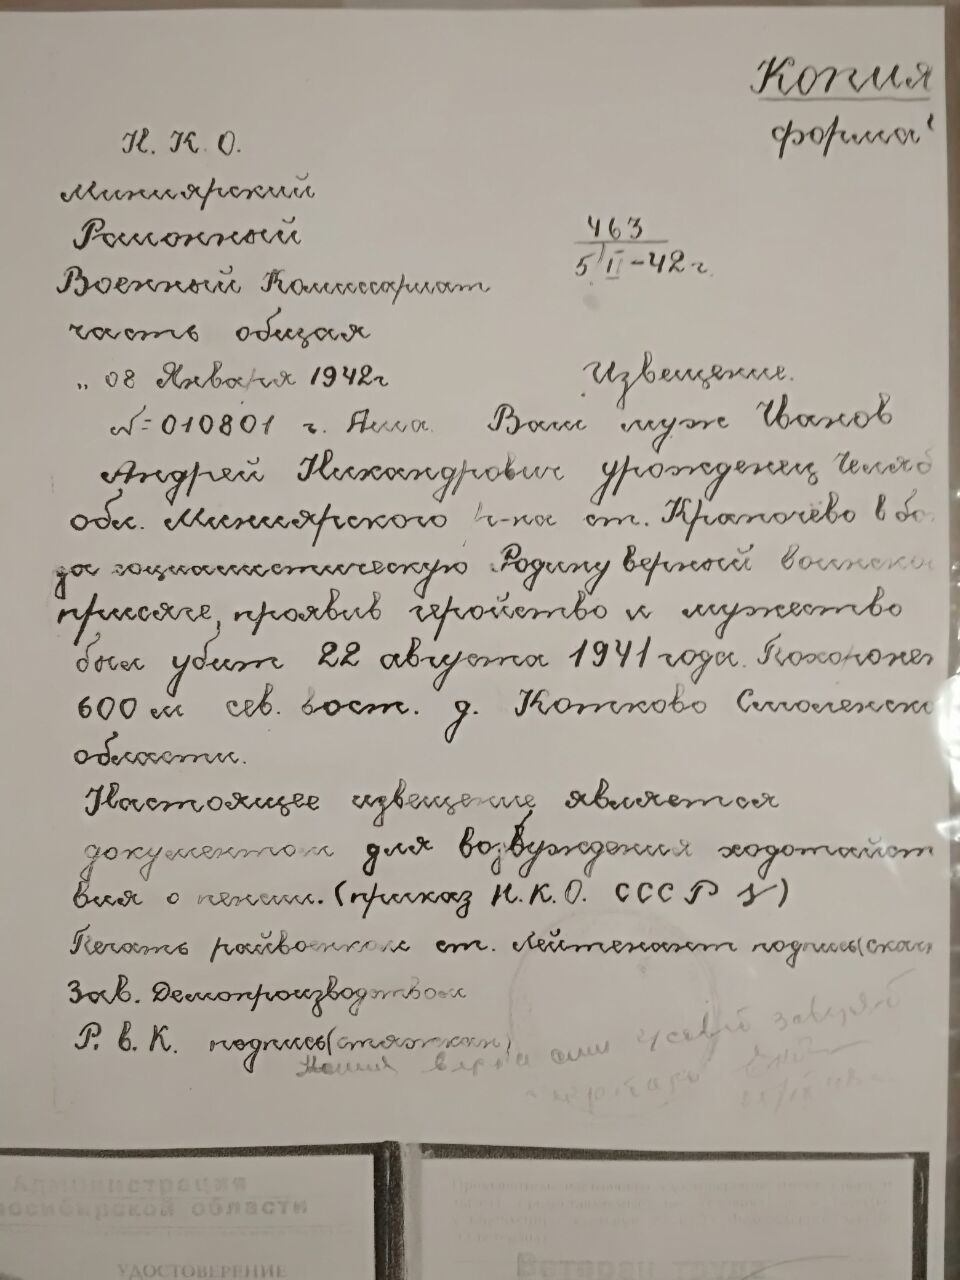 Копия
форма
Н. К. О.
Миниярский
Районный
463
5/II-42 г.
Военный Комиссариат
часть общая
„ 08 Января 1942 г
Извещение.
№=010801 г. Аша. Ваш муж Иванов
Андрей Никандрович урожденец Челяб
обл. Миниярского р-на ст. Крапочёво в бо
за социалистическую Родину верный воинско
присяге, проявив геройство и мужество
был убит 22 августа 1941 года. Похоронен
600 м сев. вост. д. Котково Смоленско
области.
Настоящее извещение является
документом для возбуждения ходотайст
вия о пенсии. (приказ Н. К. О. СССР №)
Печать райвоенком ст. Лейтенант подпись(
Зав. Делопроизводством
Р. В. К. подпись(
Копия верна
Администрация
восибирской области
УДОСТОВЕРЕНИЕ
Ветеран труда